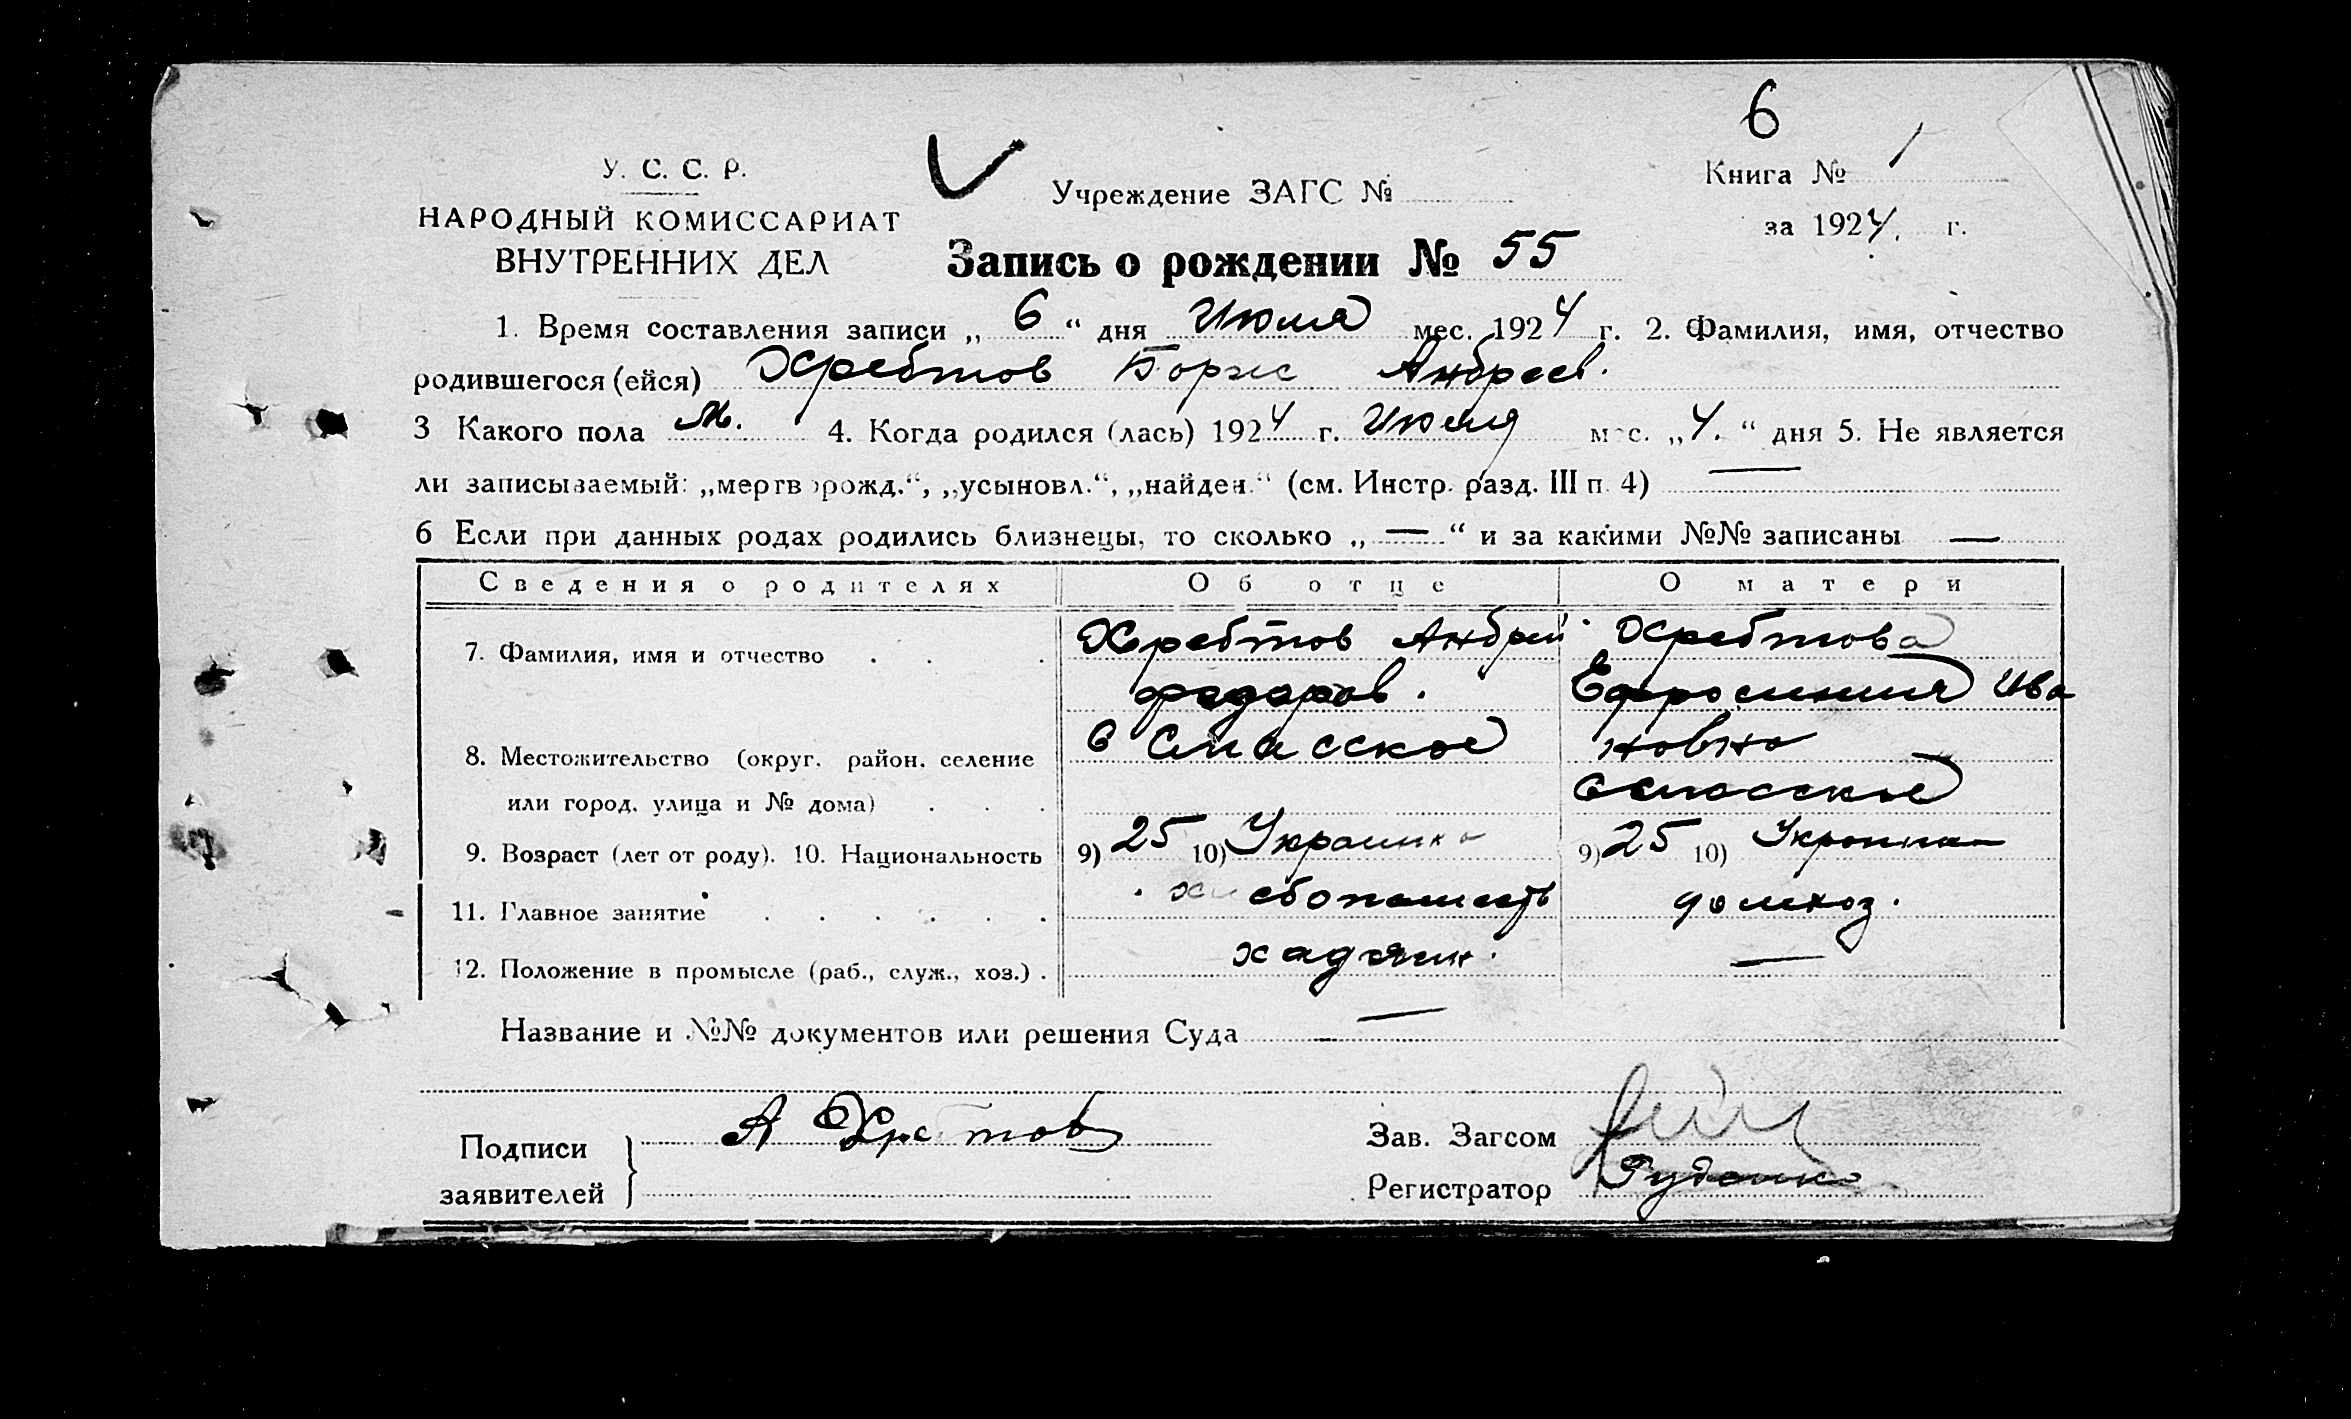 6
У. С. С. Р.
НАРОДНЫЙ КОМИССАРИАТ
ВНУТРЕННИХ ДЕЛ
Учреждение ЗАГС №
Книга № 1
за 1924 г.
Запись о рождении № 55
1. Время составления записи „ 6 “ дня Июля мес. 1924 г. 2. Фамилия, имя, отчество
родившегося (ейся) Хребтов Борис Андреев.
3 Какого пола М. 4. Когда родился (лась) 1924 г. Июля мес. „ 4. “ дня 5. Не является
ли записываемый: „мертворожд.“, „усыновл.“, „найден.“ (см. Инстр. разд. III п. 4) —
6 Если при данных родах родились близнецы, то сколько „ — “ и за какими №№ записаны —
Сведения о родителях Об отце О матери
7. Фамилия, имя и отчество . . . Хребтов Андрей Хребтова
Федоров. Ефросиния Ива
8. Местожительство (округ, район, селение с Спасское новна
или город, улица и № дома) . . . с Спасское
9. Возраст (лет от роду). 10. Национальность 9) 25 10) 9) 25 10)
11. Главное занятие . . . . . . хлебопашець домхоз.
12. Положение в промысле (раб., служ., хоз.) . —
Название и №№ документов или решения Суда —
Подписи
заявителей
А Хребтов
Зав. Загсом
Регистратор Руденко